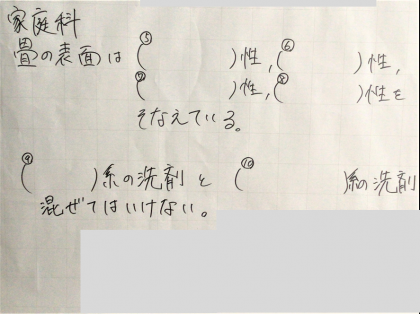 家庭科
畳の表面は (⑤　　　)性, (⑥　　　)性,
(⑦　　　)性, (⑧　　　)性を
そなえている。
(⑨　　　)系の洗剤と (⑩　　　)系の洗剤
混ぜてはいけない。